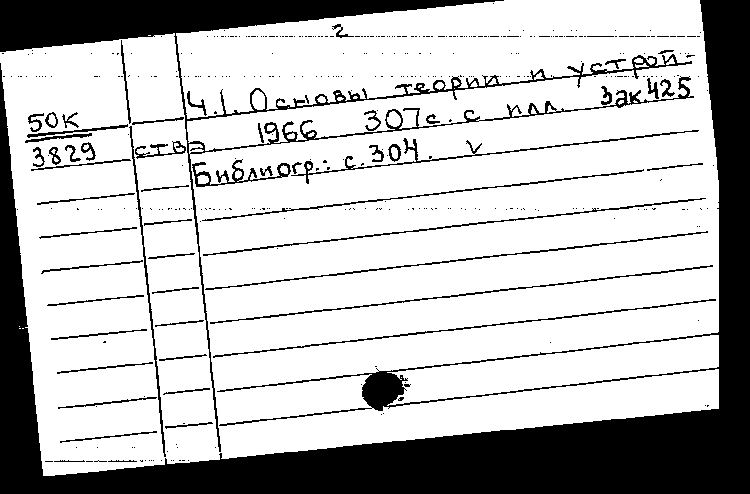 2
Ч.1. Основы теории и устрой=
50К
ства. 1966 307с. с илл. Зак.425
3829
Библиогр.: с.304. v